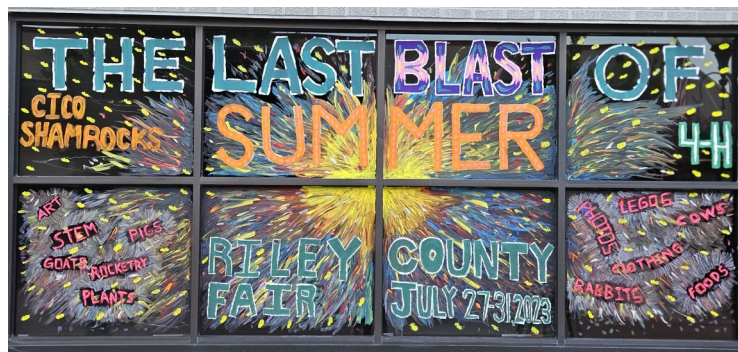 THE LAST BLAST OF
CICO
SHAMROCKS
SUMMER
4-H
ART
STEM
PIGS
GOATS
ROCKETRY
PLANTS
RILEY COUNTY
FAIR JULY 27-31, 2023
PHOTOS
LEGOS
COWS
CLOTHING
RABBITS
FOODS